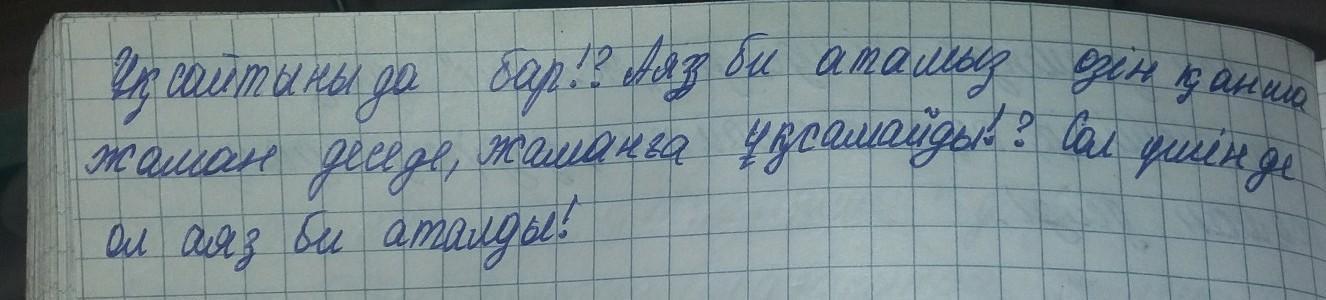 Ұқсайтыныда бар!? Аяз би атамыз өзін қанша
жаман деседе, жаманға ұқсамайды!? Сол үшінде
ол аяз би аталды!